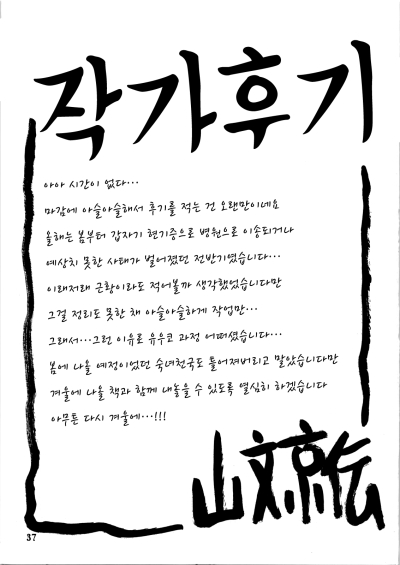 작가후기
아아 시간이 없다…
마감에 아슬아슬해서 후기를 적는 건 오랜만이네요
올해는 봄부터 갑자기 현기증으로 병원으로 이송되거나
예상치 못한 사태가 벌어졌던 전반기였습니다…
이래저래 근황이라도 적어볼까 생각했었습니다만
그걸 정리도 못한 채 아슬아슬하게 작업만…
그래서…그런 이유로 유우코 과정 어떠셨습니다…
봄에 나올 예정이었던 숙녀천국도 틀어져버리고 말았습니다만
겨울에 나올 책과 함께 내놓을 수 있도록 열심히 하겠습니다
아무튼 다시 겨울에…!!!
山文京伝
37